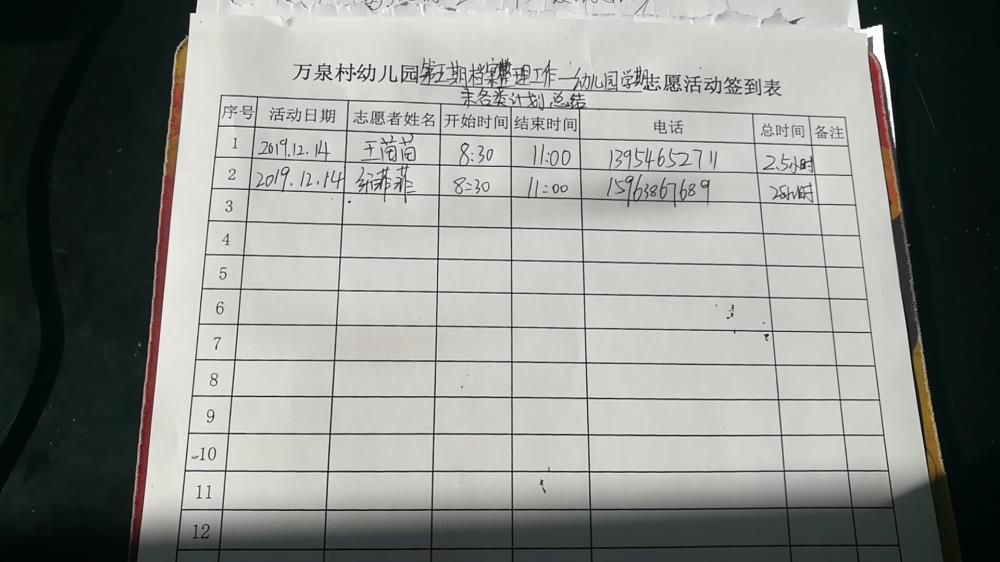 万泉村幼儿园第五期档案整理工作—幼儿园学期志愿活动签到表
末各类计划总结
序号 活动日期 志愿者姓名 开始时间 结束时间 电话 总时间 备注
1 2019.12.14 王苗苗 8:30 11:00 13954652711 2.5小时
2 2019.12.14 纪菲菲 8:30 11:00 15963867689 2.5小时
3
4
5
6
7
8
9
10
11
12